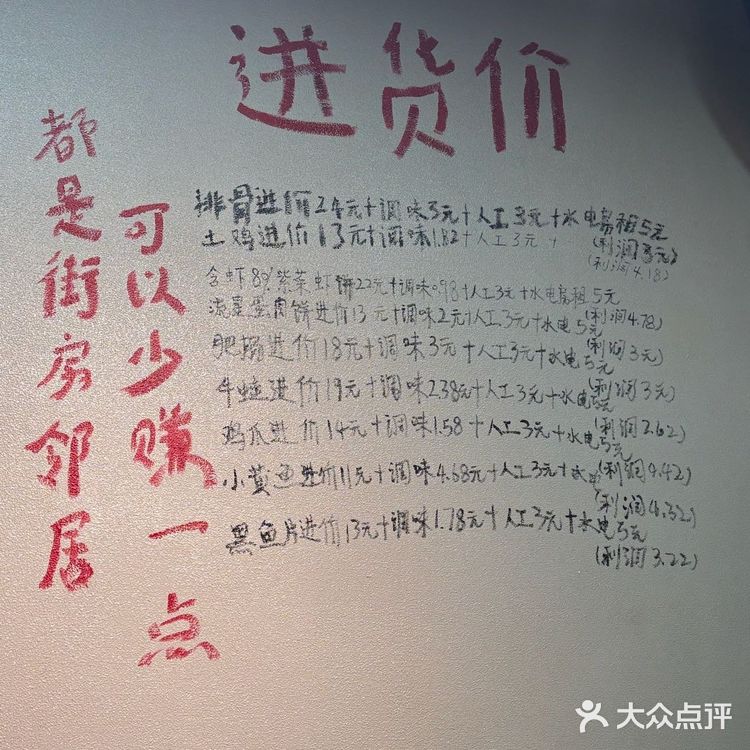 进货价
都是街房邻居
可以少赚一点
排骨进价24元+调味3元+人工3元+水电房租5元
(利润3元)
土鸡进价13元+调味1.82+人工3元+
(利润4.18)
含虾80%紫菜虾饼22元+调味0.98+人工3元+水电房租5元
(利润4.78)
流量蛋肉饼进价13元+调味2元+人工3元+水电5元
(利润3元)
肥肠进价18元+调味3元+人工3元+水电5元
(利润3元)
牛蛙进价19元+调味2.38元+人工3元+水电5元
(利润2.62)
鸡爪进价14元+调味1.58+人工3元+水电5元
(利润4.42)
小黄鱼进价11元+调味4.68元+人工3元+水电
(利润4.32)
黑鱼片进价13元+调味1.78元+人工3元+水电5元
(利润3.22)
大众点评